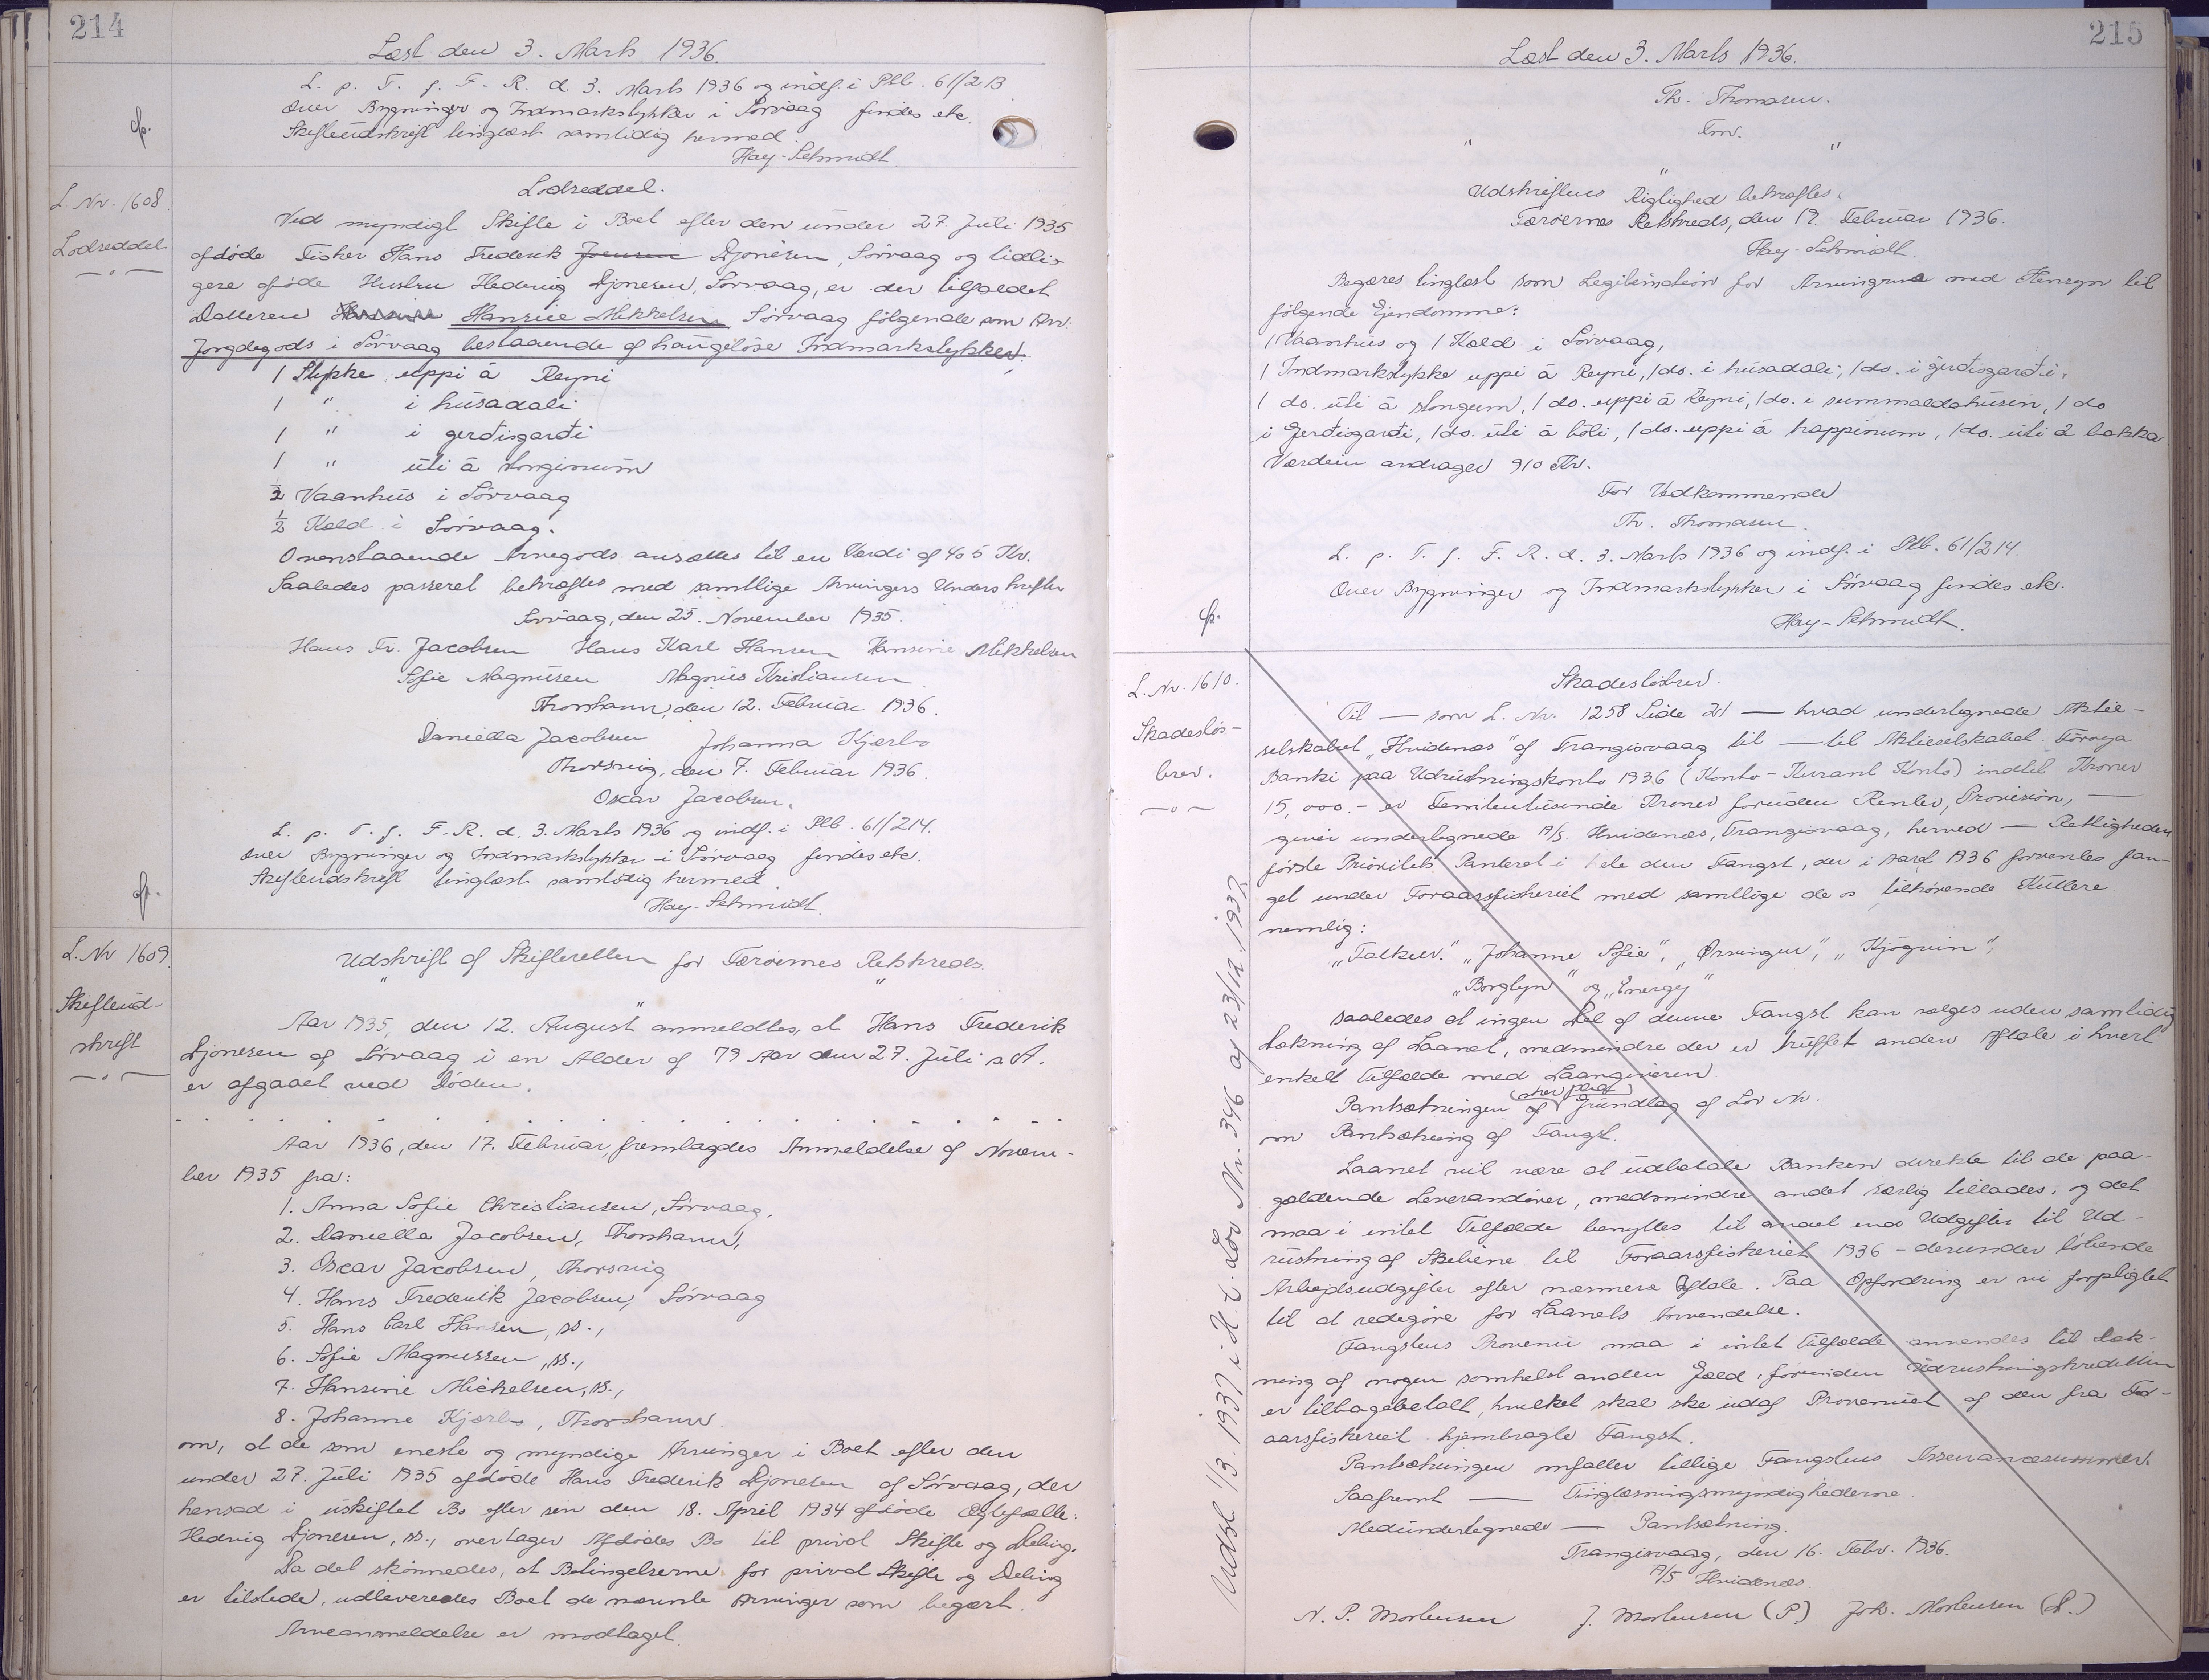 214
Læst den 3. Marts 1936.
L. p. T. f. F. R. d. 3. Marts 1936 og indf. i Ptb. 61/213
Over Bygninger og Indmarkstykker i Sörvaag findes etc.
Skifteudskrift tinglæst samtidig hermed.
Hay-Schmidt
L Nr. 1608.
Lodseddel.
Lodseddel.
Ved myndigt Skifte i Boet efter den under 27. Juli 1935
afdöde Fisker Hans Frederik Joensen Djonesen, Sörvaag og tidli-
gere afdöde Hustru Hedevig Djonesen, Sörvaag, er der tilfaldet
Datteren Hansine Hansine Mikkelsen Sörvaag fölgende som Arv:
Jordegods i Sörvaag bestaaende af haugelöse Indmarkstykker.
1 Stykke uppi á Reyni
1 " i húsadali
1 " i gerðisgarði
1 " úti á
1/2 Vaanhus i Sörvaag
1/2 Kæld i Sörvaag.
Ovenstaaende Arvegods ansættes til en Værdi af 405 Kr.
Saaledes passeret bekræftes med samtlige Arvingers Underskrifter
Sörvaag, den 25. November 1935.
Hans Fr. Jacobsen Hans Karl Hansen Hansine Mikkelsen
Sofie Magnussen Magnus Kristiansen
Thorshavn, den 12. Februar 1936.
Daniella Jacobsen Johanna Kjærbo
Thorsvig, den 7. Februar 1936.
Oscar Jacobsen.
L. p. T. f. F. R. d. 3. Marts 1936 og indf. i Ptb. 61/214.
Over Bygninger og Indmarkstykker i Sörvaag findes etc.
Skifteudskrift tinglæst samtidig hermed.
Hay-Schmidt.
L. Nr 1609.
Skifteud-
skrift
Udskrift af Skifteretten for Færöernes Retskreds.
" " "
Aar 1935, den 12. August anmeldtes, at Hans Frederik
Djonesen af Sörvaag i en Alder af 79 Aar den 27. Juli s. A.
er afgaaet ved Döden.
Aar 1936, den 17. Februar, fremlagdes Anmeldelse af Novem-
ber 1935 fra:
1. Anna Sofie Christiansen, Sörvaag,
2. Daniella Jacobsen, Thorshavn,
3. Oscar Jacobsen, Thorsvig
4. Hans Frederik Jacobsen, Sörvaag
5. Hans Carl Hansen, ss.,
6. Sofie Magnussen, ss.,
7. Hansine Mickelsen, ss.,
8. Johanne Kjærbo, Thorshavn
om, at de som eneste og myndige Arvinger i Boet efter den
under 27. Juli 1935 afdöde Hans Frederik Djonesen af Sörvaag, der
hensad i uskiftet Bo efter sin den 18. April 1934 afdöde Ægtefælle:
Hedvig Djonesen, ss., overtager Afdödes Bo til privat Skifte og Deling.
Da det skönnedes, at Betingelserne for privat Skifte og Deling
er tilstede, udleveredes Boet de nævnte Arvinger som begært.
Arveanmeldelse er modtaget.
215
Læst den 3. Marts 1936.
Th. Thomasen.
Fm.
" " "
Udskriftens Rigtighed bekræftes.
Færöerne Retskreds, den 19. Februar 1936.
Hay-Schmidt.
Begæres tinglæst som Legitimation for Arvingerne med Hensyn til
fölgende Ejendomme:
1 Vaanhus og 1 Kæld i Sörvaag,
1 Indmarkstykke uppi á Reyni, 1 do. i húsadali, 1 do. i gerðisgarði,
1 do. úti á stongum, 1 do. uppi á Reyni, 1 do. , 1 do
i Gerðisgarði, 1 do. úti á bóli, 1 do. uppi á happinum, 1 do. úti á bakka
Værdien andrager 910 Kr.
For Vedkommende
Th. Thomasen.
L. p. T. f. F. R. d. 3. Marts 1936 og indf. i Ptb. 61/214.
Over Bygninger og Indmarkstykker i Sörvaag findes etc.
Hay-Schmidt.
L. Nr. 1610.
Skadeslös-
brev.
Skadeslösbrev.
Til — som L. Nr. 1258 Side 21 — hvad undertegnede Aktie-
selskabet "Hvidenæs" af Trangisvaag til — til Aktieselskabet Föroya
Banki paa Udrustningskonto 1936 (Konto-Kurant Konto) indtil Kroner
15,000.- er Femtentusinde Kroner foruden Renter, Provision, —
giver undertegnede A/S. Hvidenæs, Trangisvaag, herved — Rettigheden
förste Prioritets Panteret i hele den Fangst, der i Aaret 1936 forventes fan-
get under Foraarsfiskeriet med samtlige de os tilhörende Kuttere
nemlig:
"Falken", "Johanne Sofie", "Örvingur", "Kjögvin",
"Borglyn" og "Energy"
saaledes at ingen Del af denne Fangst kan sælges uden samtidig
Dækning af Laanet, medmindre der er truffet anden Aftale i hvert
enkelt Tilfælde med Laangiveren
Pantsætningen (sker paa) af Grundlag af Lov Nr.
om Pantsætning af Fangst.
Laanet vil være at udbetale Banken direkte til de paa-
gældende Leverandörer, medmindre andet særlig tillades, og det
maa i intet Tilfælde benyttes til andet end Udgifter til Ud-
rustning af Skibene til Foraarsfiskeriet 1936 - derunder löbende
Arbejdsudgifter efter nærmere Aftale. Paa Opfordring er vi forpligtet
til at redegöre for Laanets Anvendelse.
Fangstens Provenu maa i intet Tilfælde anvendes til Dæk-
ning af nogen somhelst anden Gæld, forinden Udrustningskreditten
er tilbagebetalt, hvilket skal ske udaf Provenuet af den fra For-
aarsfiskeriet hjembragte Fangst.
Pantsætningen omfatter tillige Fangstens Assurancesummer.
Saafremt — Tinglæsningsmyndighederne.
Medundertegnede — Pantsætning.
Trangisvaag, den 16. Febr. 1936.
A/S Hvidenæs.
N. P. Mortensen J. Mortensen (P) Joh. Mortensen (D.)
Udsl 1/3. 1937 i H. t. Lov Nr. 346 af 23/12. 1932